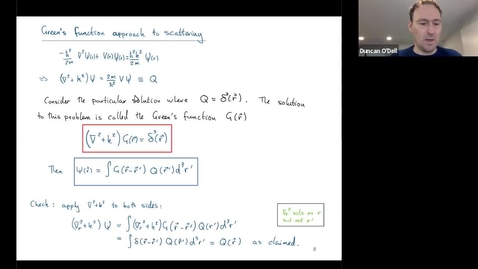 Green's function approach to scattering
-ħ²/2m ∇²ψ(r) + V(r)ψ(r) = ħ²k²/2m ψ(r)
⇔ (∇²+k²) ψ = 2m/ħ² V ψ ≡ Q
Consider the particular solution where Q = δ³(r⃗). The solution
to this problem is called the Green's function G(r⃗)
(∇²+k²) G(r⃗) = δ³(r⃗)
Then ψ(r⃗) = ∫ G(r⃗-r⃗') Q(r⃗') d³r'
Check: apply ∇²+k² to both sides:
(∇ᵣ²+k²) ψ = ∫(∇ᵣ²+k²) G(r⃗-r⃗') Q(r⃗') d³r'
= ∫ δ(r⃗-r⃗') Q(r⃗') d³r' = Q(r⃗) as claimed.
∇ᵣ² acts on r
but not r'
8
Duncan O'Dell